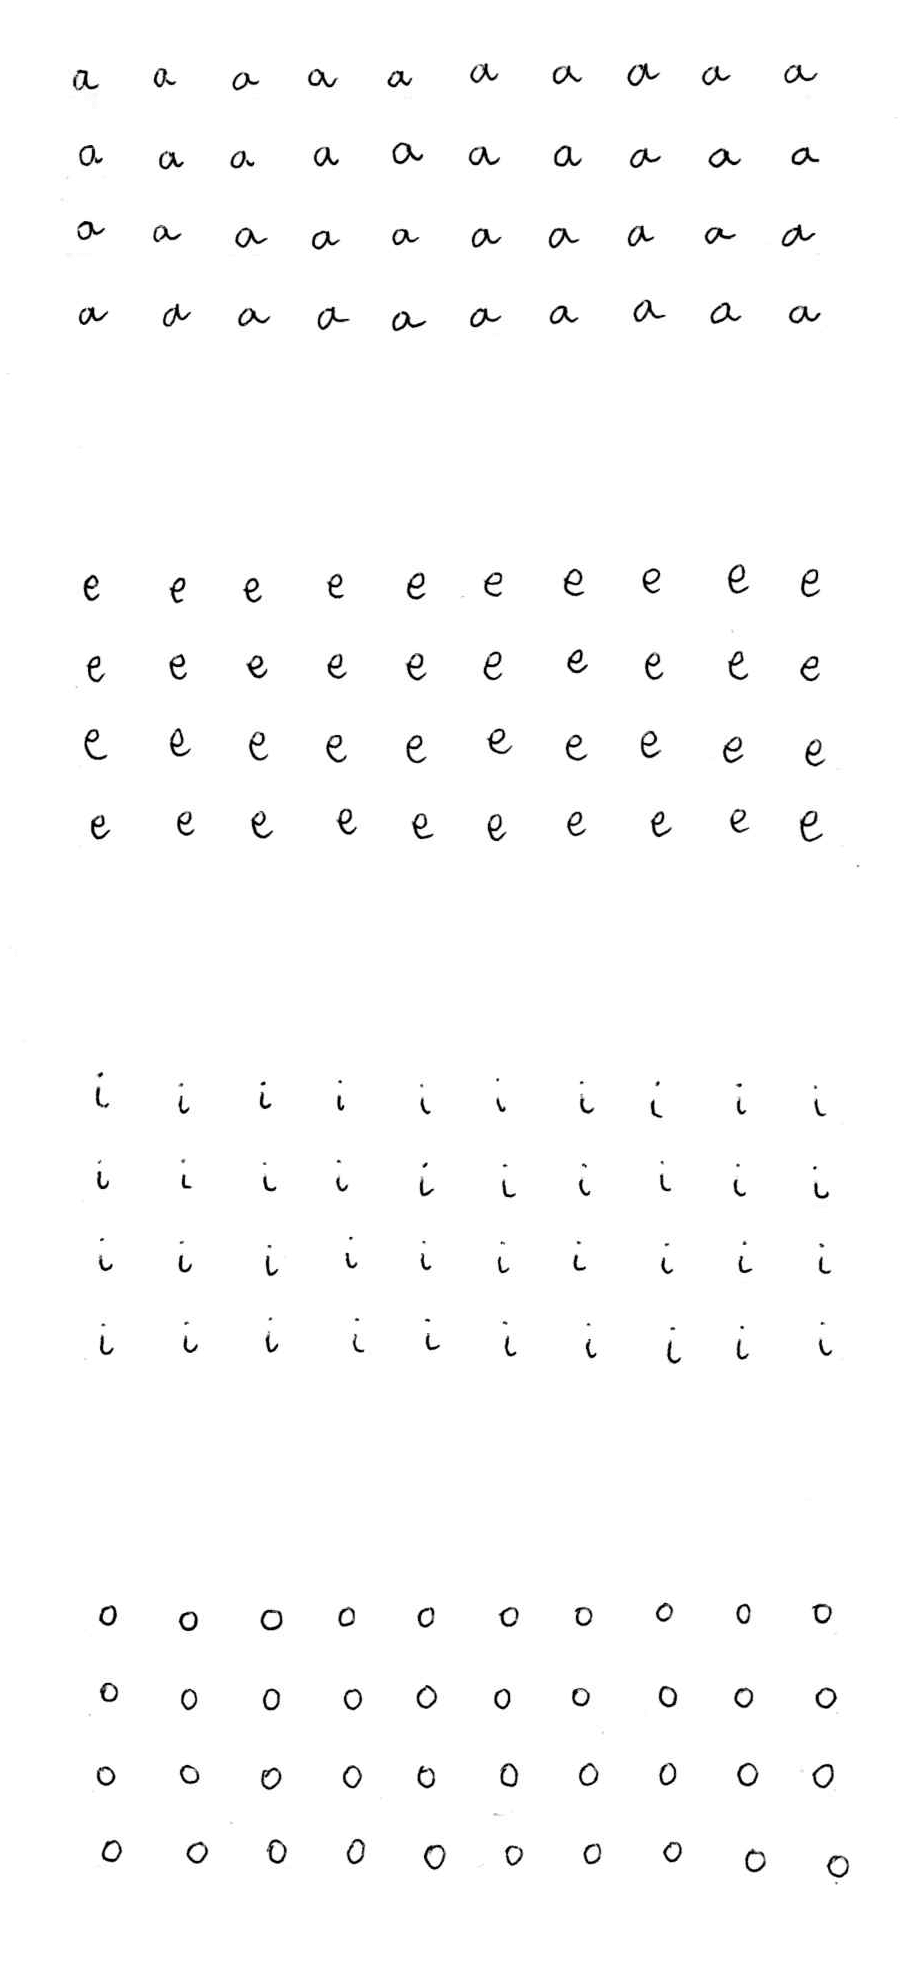 a a a a a a a a a a
a a a a a a a a a a
a a a a a a a a a a
a a a a a a a a a a
e e e e e e e e e e
e e e e e e e e e e
e e e e e e e e e e
e e e e e e e e e e
i i i i i i i i i i
i i i i i i i i i i
i i i i i i i i i i
i i i i i i i i i i
o o o o o o o o o o
o o o o o o o o o o
o o o o o o o o o o
o o o o o o o o o o